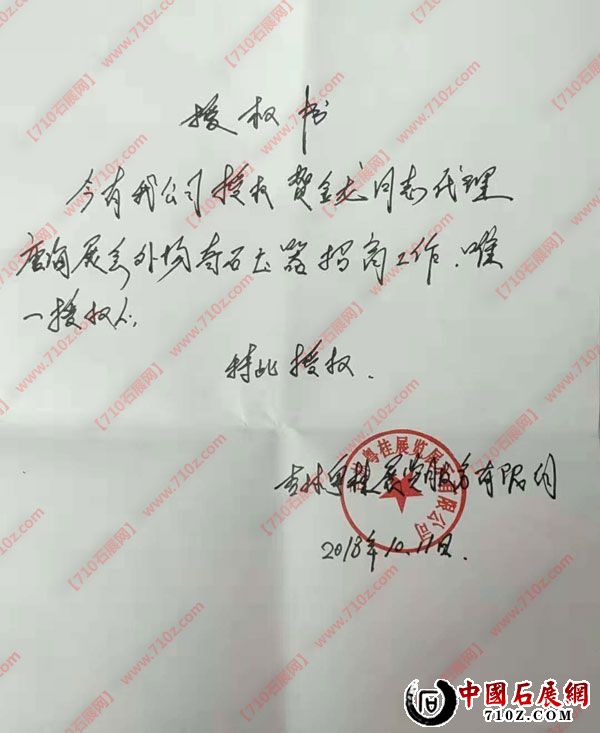 授权书
今有我公司授权贾金龙同志代理
展会外场奇石玉器招商工作.唯
一授权人.
特此授权.
吉林鸣桂展览服务有限公司
2018年10.11日.
鸣桂展览服务有限公司
【710石展网】 www.710z.com
中國石展網
710Z.COM